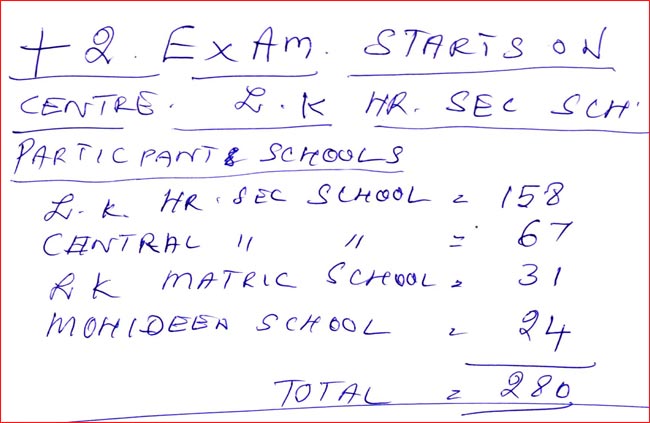 +2. EXAM. STARTS ON
CENTRE. L.K HR. SEC SCH.
PARTICPANT& SCHOOLS
L.K. HR.SEC SCHOOL = 158
CENTRAL " " = 67
L K MATRIC SCHOOL = 31
MOHIDEEN SCHOOL = 24
TOTAL = 280